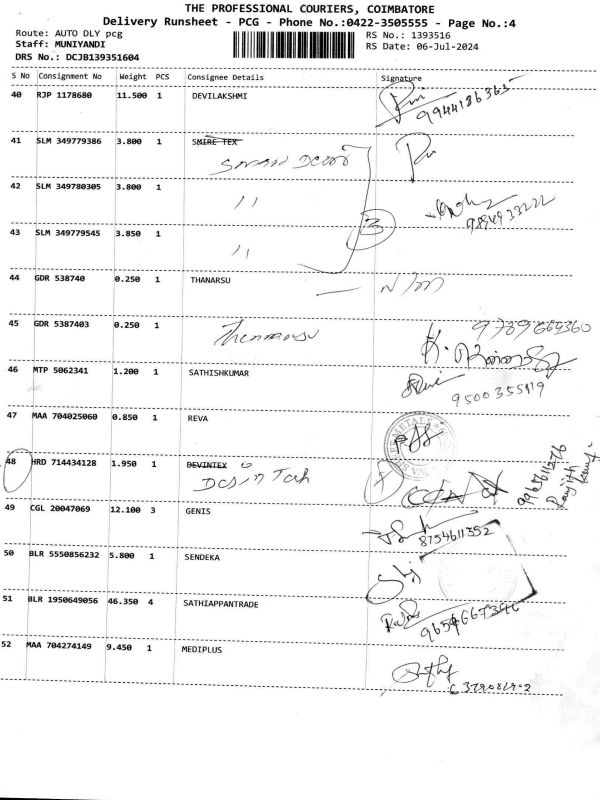 THE PROFESSIONAL COURIERS, COIMBATORE
Delivery Runsheet - PCG - Phone No.:0422-3505555 - Page No.:4
Route: AUTO DLY pcg
Staff: MUNIYANDI
DRS No.: DCJB139351604
RS No.: 1393516
RS Date: 06-Jul-2024
S No Consignment No Weight PCS Consignee Details Signature
40 RJP 1178680 11.500 1 DEVILAKSHMI
9944186365
41 SLM 349779386 3.800 1 SMIRE TEX
42 SLM 349780305 3.800 1 11
9894933222
43 SLM 349779545 3.850 1 11
3
44 GDR 538740 0.250 1 THANARSU N/M
45 GDR 5387403 0.250 1 Thennarasu
9789669360
46 MTP 5062341 1.200 1 SATHISHKUMAR
47 MAA 704025060 0.850 1 REVA
48 HRD 714434128 1.950 1 DEVINTEX
49 CGL 20047069 12.100 3 GENIS
8754611352
50 BLR 5550856232 5.800 1 SENDEKA
51 BLR 1950649056 46.350 4 SATHIAPPANTRADE
52 MAA 704274149 9.450 1 MEDIPLUS